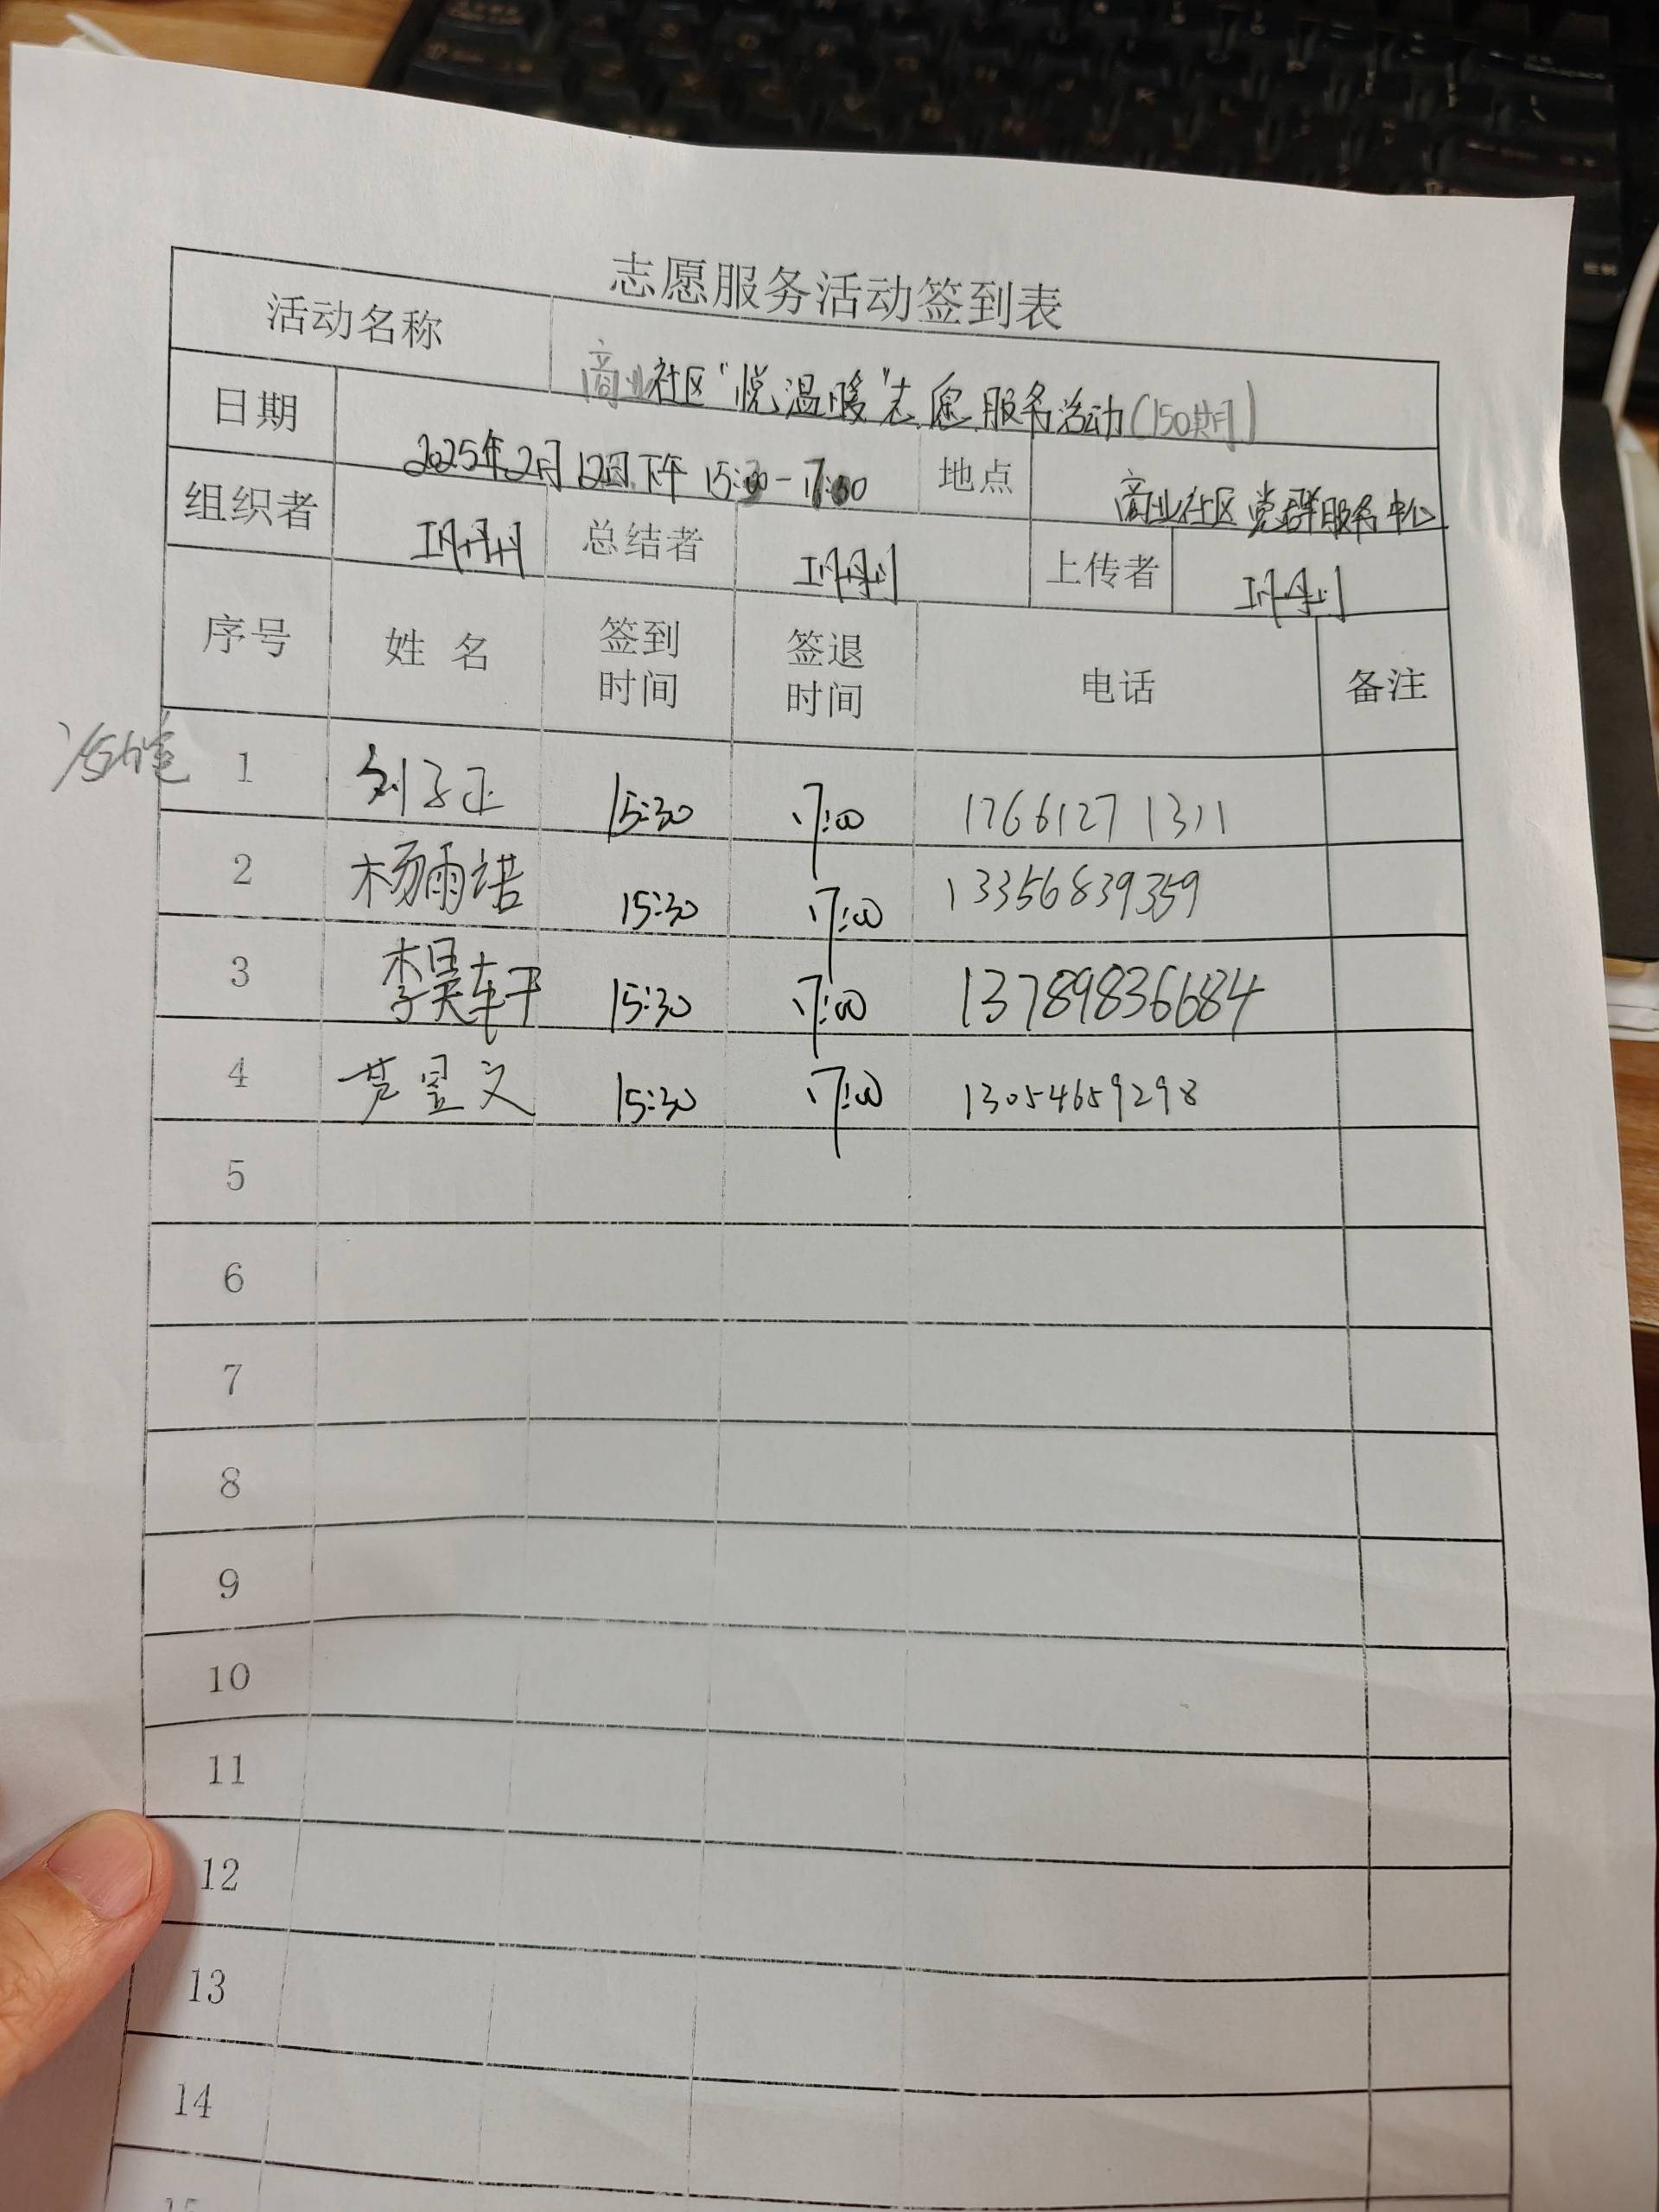 志愿服务活动签到表
活动名称 商业社区"悦温暖"志愿服务活动(150期)
日期 2025年2月12日下午 15:30-17:00 地点 商业社区党群服务中心
组织者 总结者 上传者
序号 姓名 签到时间 签退时间 电话 备注
1 刘子正 15:30 17:00 17661271311
2 杨雨诺 15:30 17:00 13356839359
3 李昊轩 15:30 17:00 13789836684
4 昱文 15:30 17:00 13054659298
5
6
7
8
9
10
11
12
13
14
15